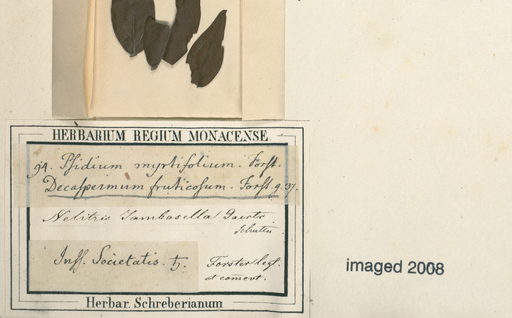 HERBARIUM REGIUM MONACENSE
94. Psidium myrtifolium. Forst.
Decaspermum fruticosum. Forst. g. 37.
Nelitris Jambosella Gaertn
Inss. Societatis. ♄.
Forster leg.
et comm.
Herbar. Schreberianum
imaged 2008